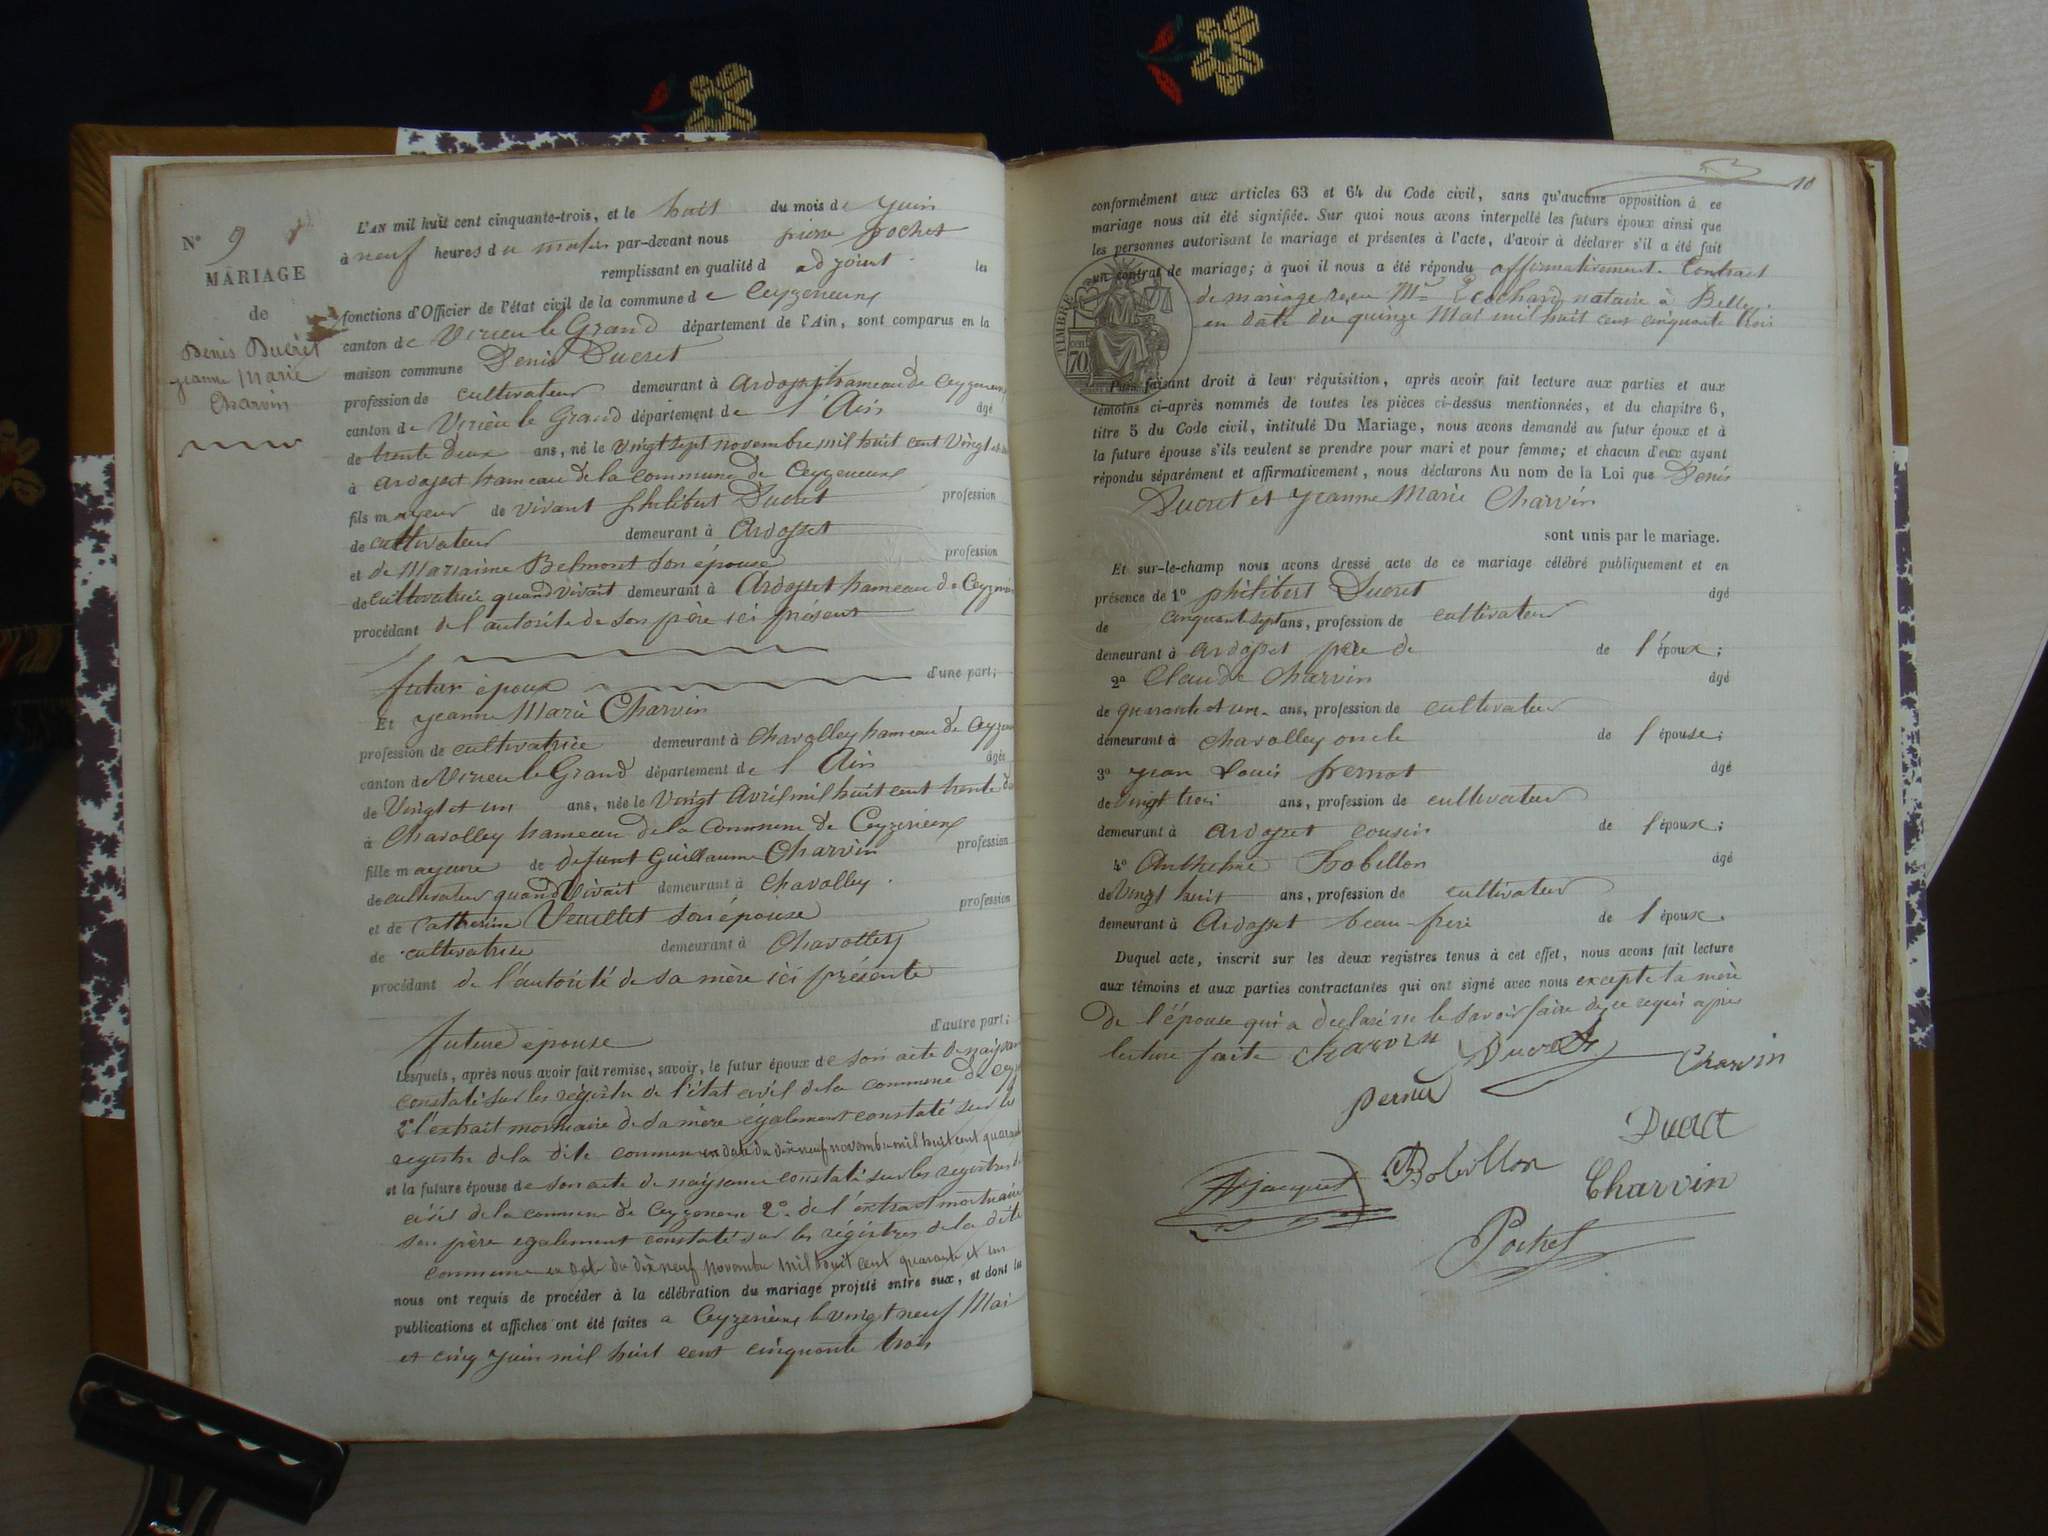 N° 9
MARIAGE
de
Denis Ducret
jeanne Marie
Charvin
L'AN mil huit cent cinquante-trois, et le huit du mois de juin
à neuf heures du matin par-devant nous pierre pochet
remplissant en qualité d adjoint les
fonctions d'Officier de l'état civil de la commune de Ceyzerieux
canton de Virieu le Grand département de l'Ain, sont comparus en la
maison commune Denis Ducret
profession de cultivateur demeurant à ardosset hameau de Ceyzerieux
canton de Virieu le Grand département de l'Ain âgé
de trente deux ans, né le vingt sept novembre mil huit cent vingt
à ardosset hameau de la commune de Ceyzerieux
fils mayeur de vivant philibert Ducret profession
de cultivateur demeurant à Ardosset
et de Mariaime Belmont son épouse profession
de cultivatrice quand vivait demeurant à Ardosset hameau de Ceyzerieux
procédant de l'autorité de son père ici présent
futur époux d'une part;
Et jeanne Marie Charvin
profession de cultivatrice demeurant à Chavolley hameau de Ceyzerieux
canton de Virieu le Grand département de l Ain âgée
de Vingt et un ans, née le Vingt Avril mil huit cent trente
à Chavolley hameau de la Commune de Ceyzerieux
fille mayeure de defunt Guillaume Charvin profession
de cultivateur quand Vivait demeurant à Chavolley.
et de Catherine Veuillet son épouse profession
de cultivatrice demeurant à Chavolley
procédant de l'autorité de sa mère ici présente
future épouse d'autre part;
Lesquels, après nous avoir fait remise, savoir, le futur époux de son acte de naissance
constaté sur les régistre de l'état civil de la commune de Ceyz
2° l'extrait mortuaire de sa mère également constaté sur les
registre de la dite commune en date du dix neuf novembre mil huit cent quarante
et la future épouse de son acte de naissance constaté sur les registres de
civil de la commune de Ceyzerieux 2° de l'extrait mortuaire
son père egalement constaté sur les régistres de la dite
commune en date du dix neuf Novembre mil huit cent quarante et un
nous ont requis de procéder à la célébration du mariage projeté entre eux, et dont les
publications et affiches ont été faites a Ceyzerieux le vingt neuf Mai
et cinq juin mil huit cent cinquante trois
10
conformément aux articles 63 et 64 du Code civil, sans qu'aucune opposition à ce
mariage nous ait été signifiée. Sur quoi nous avons interpellé les futurs époux ainsi que
les personnes autorisant le mariage et présentes à l'acte, d'avoir à déclarer s'il a été fait
un contrat de mariage; à quoi il nous a été répondu affirmativement. Contract
de mariage reçu Me Ecochard notaire à Belley
en date du quinze Mai mil huit cent cinquante trois
TIMBRE
70
Puis faisant droit à leur réquisition, après avoir fait lecture aux parties et aux
témoins ci-après nommés de toutes les pièces ci-dessus mentionnées, et du chapitre 6,
titre 5 du Code civil, intitulé Du Mariage, nous avons demandé au futur époux et à
la future épouse s'ils veulent se prendre pour mari et pour femme; et chacun d'eux ayant
répondu séparément et affirmativement, nous déclarons Au nom de la Loi que Denis
Ducret et jeanne Marie Charvin
sont unis par le mariage.
Et sur-le-champ nous avons dressé acte de ce mariage célébré publiquement et en
présence de 1° philibert Ducret âgé
de cinquant sept ans, profession de cultivateur
demeurant à ardosset père de de l'époux;
2° Claude Charvin âgé
de quarante et un ans, profession de cultivateur
demeurant à chavolley oncle de l'épouse;
3° jean Louis pernot âgé
de vingt trois ans, profession de cultivateur
demeurant à ardosset cousin de l'époux;
4° Anthelme Bobillon âgé
de Vingt huit ans, profession de cultivateur
demeurant à Ardosset beau-frère de l'époux.
Duquel acte, inscrit sur les deux registres tenus à cet effet, nous avons fait lecture
aux témoins et aux parties contractantes qui ont signé avec nous excepte la mère
de l'épouse qui a déclaré ne le savoir faire de ce requis après
lecture faite Charvin Ducret Charvin
pernot
Ducret
Bobillon
Charvin
Pochet